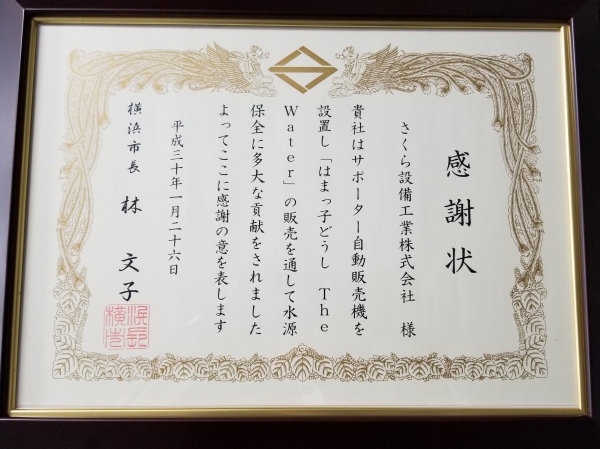 感謝状
さくら設備工業株式会社 様
貴社はサポーター自動販売機を
設置し「はまっ子どうし The
Water」の販売を通して水源
保全に多大な貢献をされました
よってここに感謝の意を表します
平成三十年一月二十六日
横浜市長 林 文子